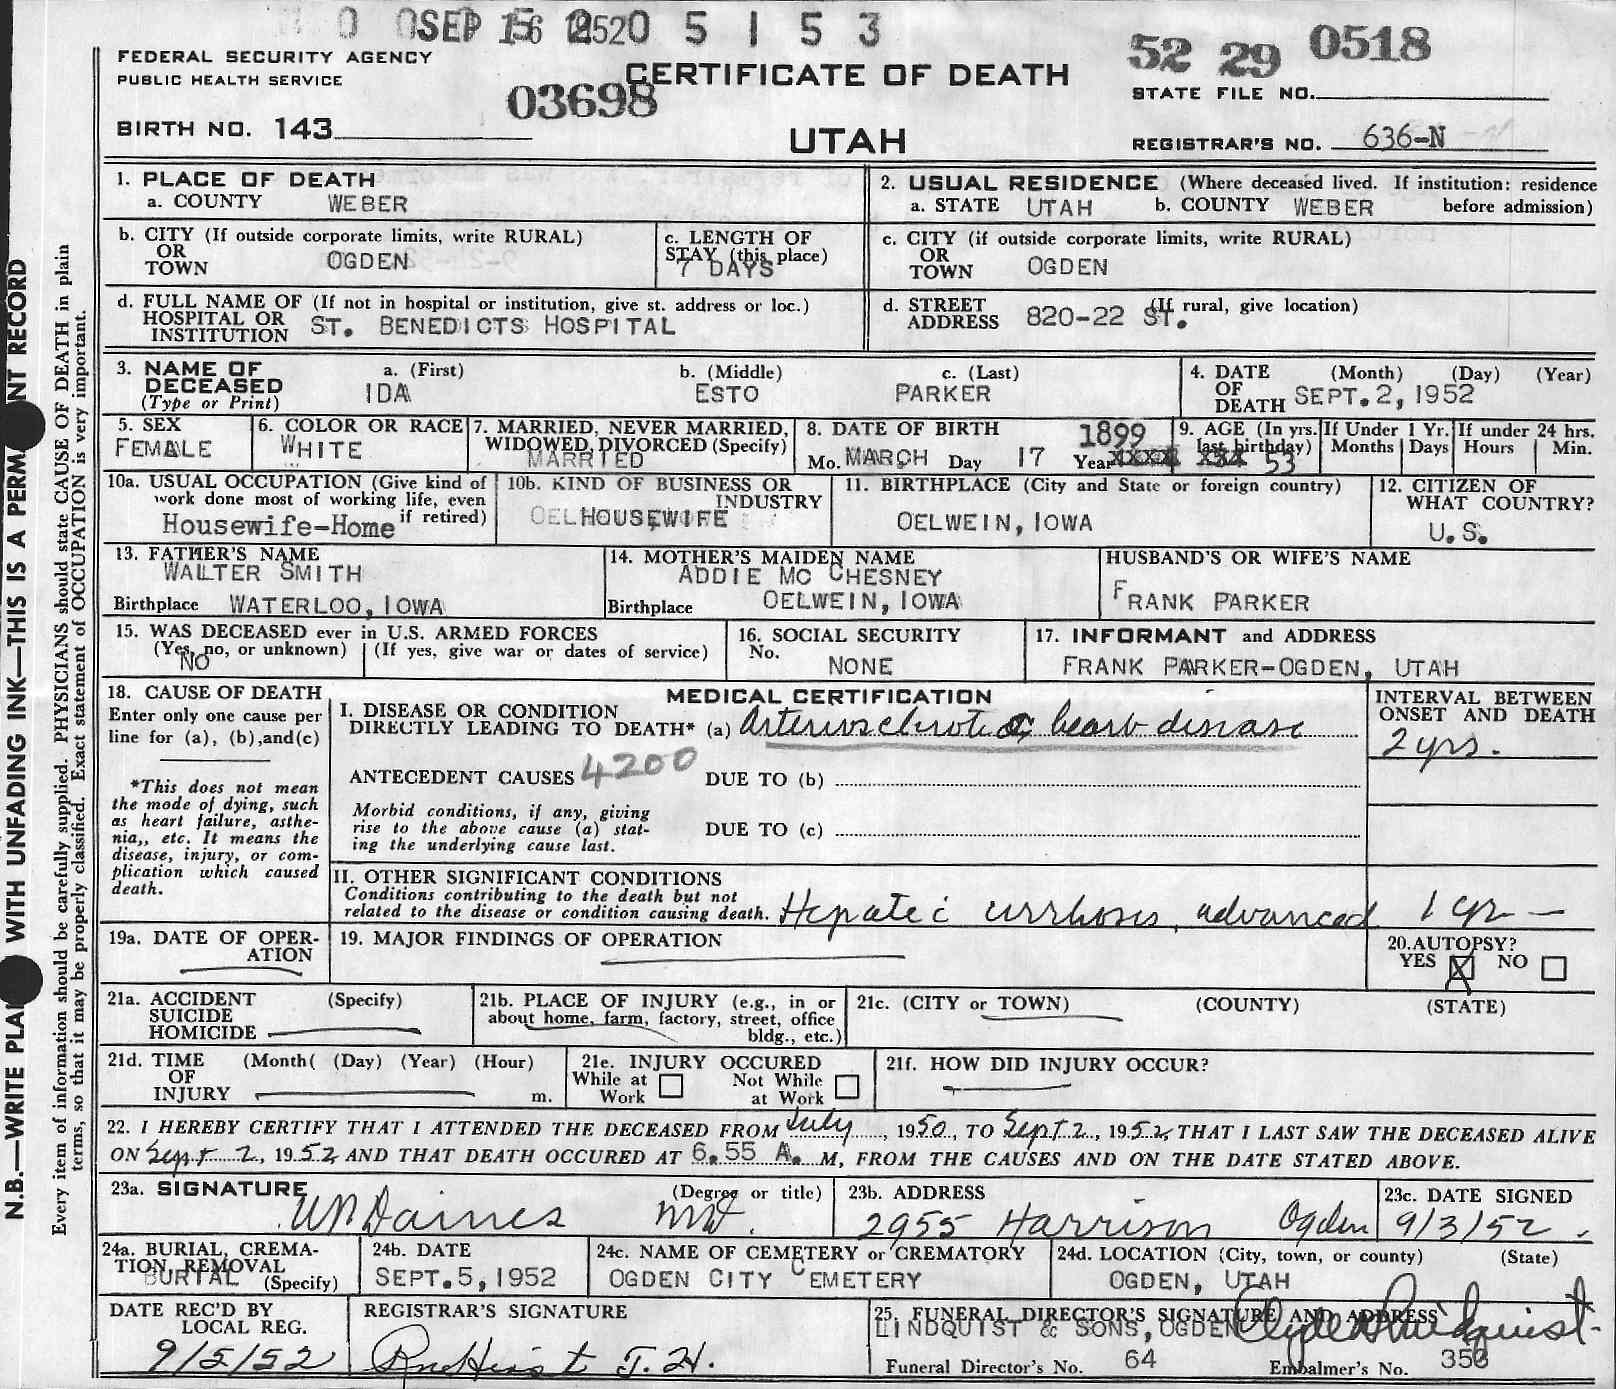 SEP 1952 0 5 1 5 3
52 29 0518
FEDERAL SECURITY AGENCY
PUBLIC HEALTH SERVICE
CERTIFICATE OF DEATH
STATE FILE NO.
03698
BIRTH NO. 143
UTAH
REGISTRAR'S NO. 636-N
1. PLACE OF DEATH
a. COUNTY WEBER
2. USUAL RESIDENCE (Where deceased lived. If institution: residence before admission)
a. STATE UTAH b. COUNTY WEBER
b. CITY (If outside corporate limits, write RURAL)
OR TOWN OGDEN
c. LENGTH OF STAY (this place)
7 DAYS
c. CITY (if outside corporate limits, write RURAL)
OR TOWN OGDEN
d. FULL NAME OF (If not in hospital or institution, give st. address or loc.)
HOSPITAL OR INSTITUTION ST. BENEDICTS HOSPITAL
d. STREET ADDRESS (If rural, give location)
820-22 ST.
3. NAME OF DECEASED (Type or Print)
a. (First) b. (Middle) c. (Last)
IDA ESTO PARKER
4. DATE OF DEATH (Month) (Day) (Year)
SEPT.2,1952
5. SEX
FEMALE
6. COLOR OR RACE
WHITE
7. MARRIED, NEVER MARRIED, WIDOWED, DIVORCED (Specify)
MARRIED
8. DATE OF BIRTH
Mo. MARCH Day 17 Year 1899
9. AGE (In yrs. last birthday)
53
If Under 1 Yr. Months Days
If under 24 hrs. Hours Min.
10a. USUAL OCCUPATION (Give kind of work done most of working life, even if retired)
Housewife-Home
10b. KIND OF BUSINESS OR INDUSTRY
HOUSEWIFE
11. BIRTHPLACE (City and State or foreign country)
OELWEIN, IOWA
12. CITIZEN OF WHAT COUNTRY?
U.S.
13. FATHER'S NAME
WALTER SMITH
Birthplace WATERLOO, IOWA
14. MOTHER'S MAIDEN NAME
ADDIE MC CHESNEY
Birthplace OELWEIN, IOWA
HUSBAND'S OR WIFE'S NAME
FRANK PARKER
15. WAS DECEASED ever in U.S. ARMED FORCES
(Yes, no, or unknown) (If yes, give war or dates of service)
NO
16. SOCIAL SECURITY No.
NONE
17. INFORMANT and ADDRESS
FRANK PARKER-OGDEN, UTAH
18. CAUSE OF DEATH
Enter only one cause per line for (a), (b),and(c)
*This does not mean the mode of dying, such as heart failure, asthenia,, etc. It means the disease, injury, or complication which caused death.
MEDICAL CERTIFICATION
I. DISEASE OR CONDITION DIRECTLY LEADING TO DEATH* (a) Arteriosclerotic heart disease
INTERVAL BETWEEN ONSET AND DEATH
2 yrs.
ANTECEDENT CAUSES 4200 DUE TO (b)
Morbid conditions, if any, giving rise to the above cause (a) stating the underlying cause last.
DUE TO (c)
II. OTHER SIGNIFICANT CONDITIONS
Conditions contributing to the death but not related to the disease or condition causing death. Hepatic cirrhosis, advanced 1 yr —
19a. DATE OF OPERATION
19. MAJOR FINDINGS OF OPERATION
20. AUTOPSY?
YES X NO
21a. ACCIDENT SUICIDE HOMICIDE (Specify)
21b. PLACE OF INJURY (e.g., in or about home, farm, factory, street, office bldg., etc.)
21c. (CITY or TOWN) (COUNTY) (STATE)
21d. TIME OF INJURY (Month( (Day) (Year) (Hour) m.
21e. INJURY OCCURED
While at Work Not While at Work
21f. HOW DID INJURY OCCUR?
22. I HEREBY CERTIFY THAT I ATTENDED THE DECEASED FROM July, 1950, TO Sept 2, 1952, THAT I LAST SAW THE DECEASED ALIVE
ON Sept 2, 1952 AND THAT DEATH OCCURED AT 6.55 A. M, FROM THE CAUSES AND ON THE DATE STATED ABOVE.
23a. SIGNATURE (Degree or title)
WP Daines MD.
23b. ADDRESS
2955 Harrison Ogden
23c. DATE SIGNED
9/3/52.
24a. BURIAL, CREMATION, REMOVAL (Specify)
BURIAL
24b. DATE
SEPT.5,1952
24c. NAME OF CEMETERY or CREMATORY
OGDEN CITY CEMETERY
24d. LOCATION (City, town, or county) (State)
OGDEN, UTAH
DATE REC'D BY LOCAL REG.
9/5/52
REGISTRAR'S SIGNATURE
25. FUNERAL DIRECTOR'S SIGNATURE AND ADDRESS
LINDQUIST & SONS, OGDEN Clyde Lindquist
Funeral Director's No. 64 Embalmer's No. 353
N.B.—WRITE PLAI WITH UNFADING INK—THIS IS A PERMA NT RECORD
Every item of information should be carefully supplied. PHYSICIANS should state CAUSE OF DEATH in plain
terms, so that it may be properly classified. Exact statement of OCCUPATION is very important.